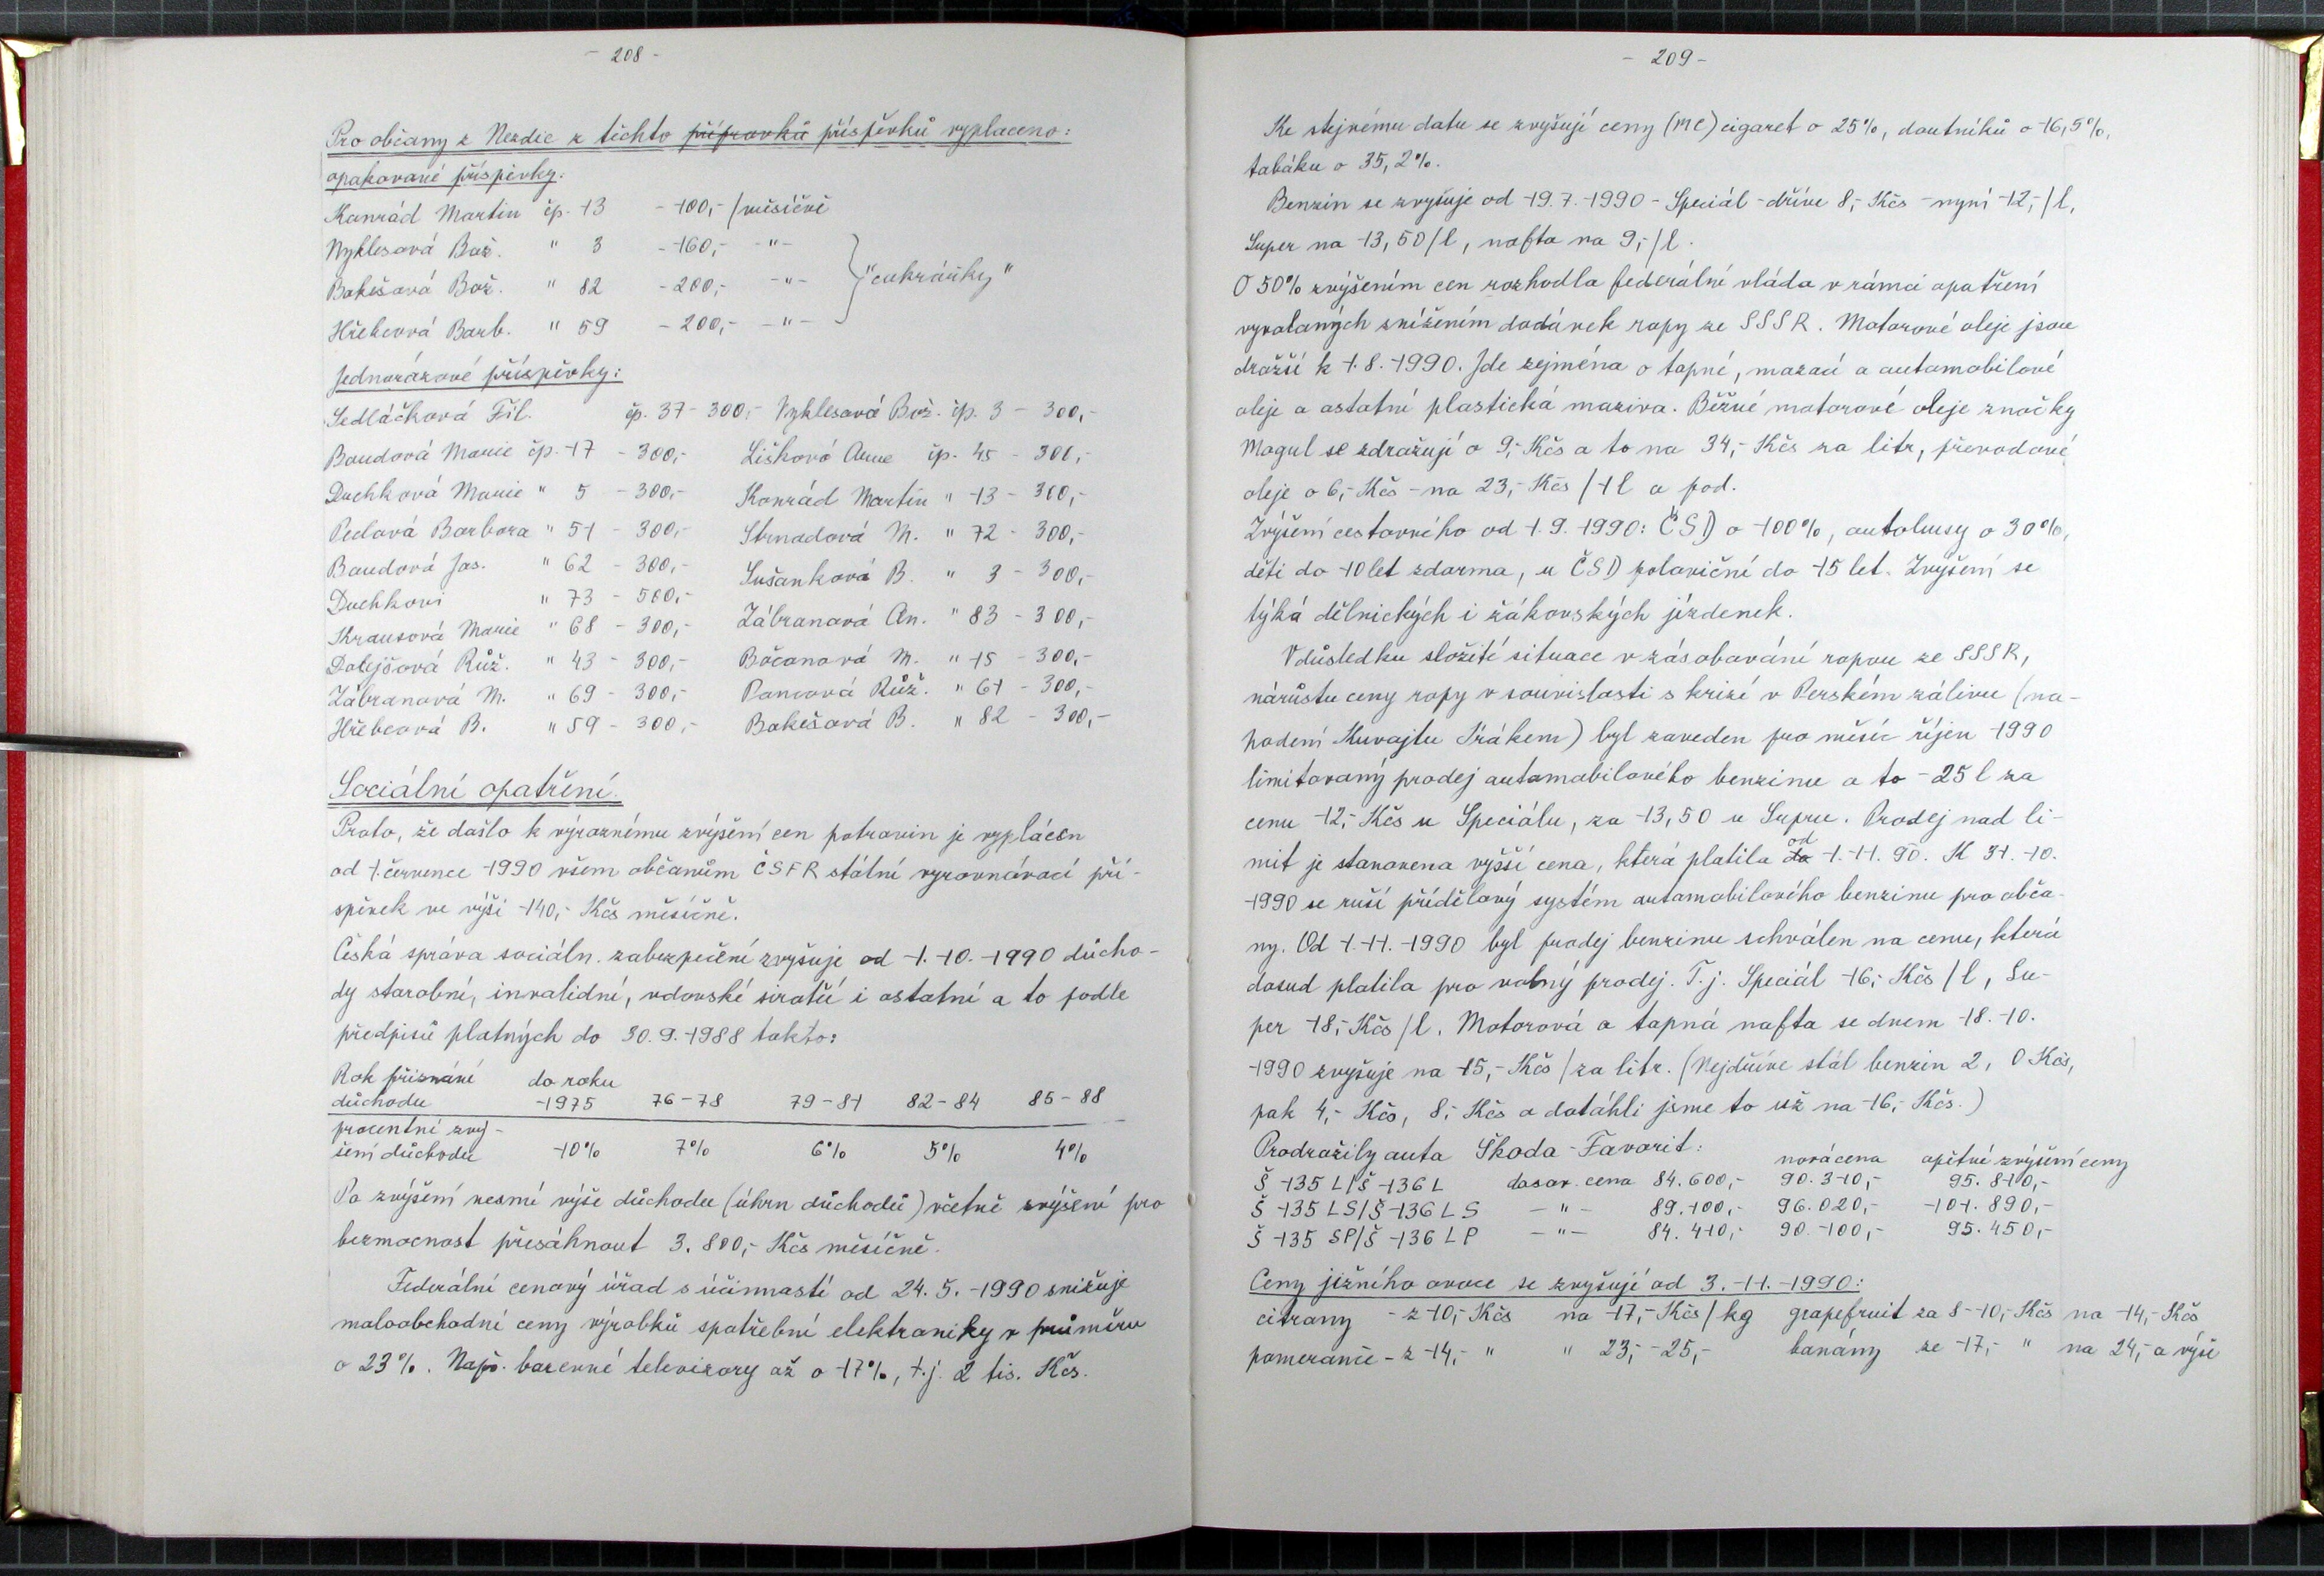 - 208 -
Pro občany z Nezdic z těchto přípravků příspěvků vyplaceno:
opakované příspěvky:
Konrád Martin čp. 13 - 100,- / měsíčně
Nyklesová Bož. " 3 - 160,- - " -
Bakešová Bož. " 82 - 200,- - " - "cukrářky"
Hřebcová Barb. " 59 - 200,- - " -
Jednorázové příspěvky:
Sedláčková Fil. čp. 37 - 300,- Vyklesová Bož. čp. 3 - 300,-
Boudová Marie čp. 17 - 300,- Lišková Anna čp. 45 - 300,-
Duchková Marie " 5 - 300,- Konrád Martin " 13 - 300,-
Peclová Barbora " 51 - 300,- Strnadová M. " 72 - 300,-
Boudová Jos. " 62 - 300,- Sušanková B. " 3 - 300,-
Duchkovi " 73 - 500,-
Krausová Marie " 68 - 300,- Zábranová An. " 83 - 300,-
Dolejšová Růž. " 43 - 300,- Bočanová M. " 15 - 300,-
Zábranová M. " 69 - 300,- Pancová Růž. " 61 - 300,-
Hřebcová B. " 59 - 300,- Bakešová B. " 82 - 300,-
Sociální opatření.
Proto, že došlo k výraznému zvýšení cen potravin je vyplácen
od 1. července 1990 všem občanům ČSFR státní vyrovnávací pří-
spěvek ve výši 140,- Kčs měsíčně.
Česká správa sociáln. zabezpečení zvyšuje od 1.10.1990 důcho-
dy starobní, invalidní, vdovské sirotčí i ostatní a to podle
předpisů platných do 30.9.1988 takto:
Rok přiznání do roku
důchodu 1975 76-78 79-81 82-84 85-88
procentní zvý-
šení důchodu 10% 7% 6% 5% 4%
Po zvýšení nesmí výše důchodu (úhrn důchodů) včetně zvýšení pro
bezmocnost přesáhnout 3.800,- Kčs měsíčně.
Federální cenový úřad s účinností od 24.5.1990 snižuje
maloobchodní ceny výrobků spotřební elektroniky v průměru
o 23%. Např. barevné televizory až o 17%, t.j. 2 tis. Kčs.
- 209 -
Ke stejnému datu se zvyšují ceny (MC) cigaret o 25%, doutníků o 16,5%,
tabáku o 35,2%.
Benzin se zvyšuje od 19.7.1990 - Speciál - dříve 8,- Kčs - nyní 12,-/l,
Super na 13,50/l, nafta na 9,-/l.
O 50% zvýšením cen rozhodla federální vláda v rámci opatření
vyvolaných snížením dodávek ropy ze SSSR. Motorové oleje jsou
dražší k 1.8.1990. Jde zejména o topné, mazací a automobilové
oleje a ostatní plastická maziva. Běžné motorové oleje značky
Mogul se zdražují o 9,- Kčs a to na 34,- Kčs za litr, převodové
oleje o 6,- Kčs - na 23,- Kčs / 1 l a pod.
Zvýšení cestovného od 1.9.1990: ČSD o 100%, autobusy o 30%,
děti do 10 let zdarma, u ČSD poloviční do 15 let. Zvýšení se
týká dělnických i žákovských jízdenek.
V důsledku složité situace v zásobování ropou ze SSSR,
nárůstu ceny ropy v souvislosti s krizí v Perském zálivu (na-
padení Kuvajtu Irákem) byl zaveden pro měsíc říjen 1990
limitovaný prodej automobilového benzinu a to - 25 l za
cenu 12,- Kčs u Speciálu, za 13,50 u Supru. Prodej nad li-
mit je stanovena vyšší cena, která platila do od 1.11.90. K 31.10.
1990 se ruší přídělový systém automobilového benzinu pro obča-
ny. Od 1.11.1990 byl prodej benzinu schválen na cenu, která
dosud platila pro volný prodej. T.j. Speciál 16,- Kčs / l, Su-
per 18,- Kčs / l. Motorová a topná nafta se dnem 18.10.
1990 zvyšuje na 15,- Kčs / za litr. (Nejdříve stál benzin 2, 0 Kčs,
pak 4,- Kčs, 8,- Kčs a dotáhli jsme to už na 16,- Kčs.)
Prodražily auta Škoda - Favorit: nová cena opětné zvýšení ceny
Š 135 L/Š 136 L dosav. cena 84.600,- 90.310,- 95.810,-
Š 135 LS/Š 136 LS - " - 89.100,- 96.020,- 101.890,-
Š 135 SP/Š 136 LP - " - 84.410,- 90.100,- 95.450,-
Ceny jižního ovoce se zvyšují od 3.11.1990:
citrony - z 10,- Kčs na 17,- Kčs / kg grapefruit za 8-10,- Kčs na 14,- Kčs
pomeranče - z 14,- " " 23,- 25,- banány ze 17,- " na 24,- a výše